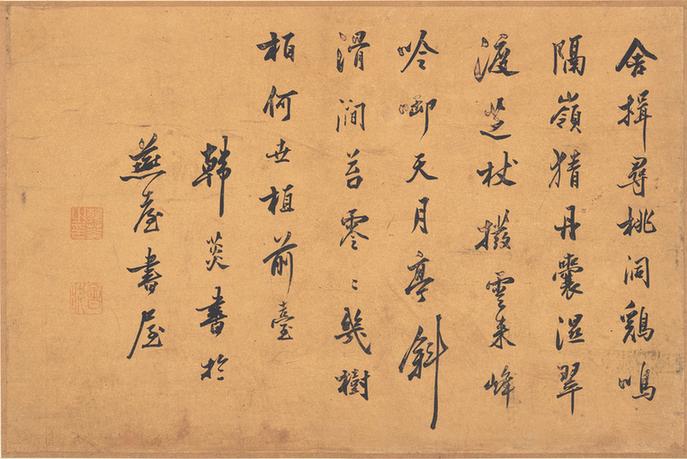 舍揖尋桃洞鷄鳴
隔嶺猜丹囊濕翠
渡芝杖撥雲来峰
吟啣天月亭斜
滑澗苔零〻幾樹
栢何世植前臺
韓菼書於
燕臺書屋